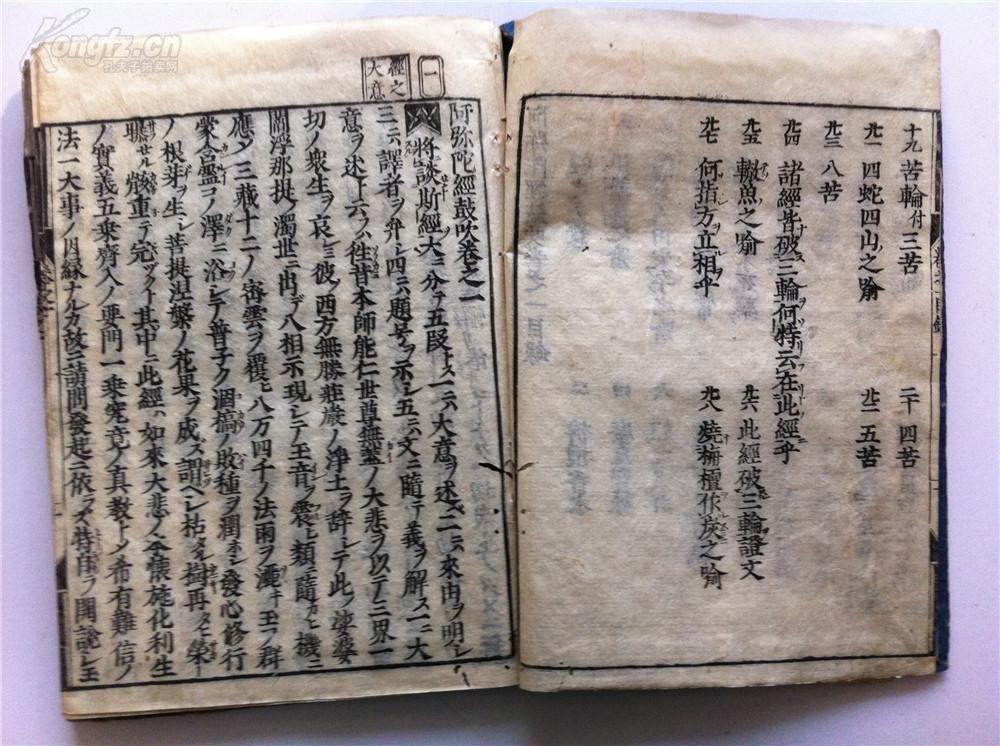 十九 苦輪付三苦 二十 四苦
廿一 四蛇四山之喻 廿二 五苦
廿三 八苦
廿四 諸經皆破三輪何特云在此經乎
廿五 轍魚之喻 廿六 此經破三輪證文
廿七 何指方立相乎 廿八 燒栴檀作炭之喻
一
經之大意
阿弥陀經鼓吹卷之一
將談斯經大ニ分テ五段トス一ニハ大意ヲ述二ニハ來由ヲ明シ
三ニハ譯者ヲ弁シ四ニハ題号ヲ示シ五ニハ文ニ隨テ義ヲ解ス一ニ大
意ヲ述トハ徃昔本師能仁世尊無蓋ノ大悲ヲ以テ三界一
切ノ衆生ヲ哀ミ彼ノ西方無勝莊嚴ノ浄土ヲ辞シテ此ノ
閻浮那提ノ濁世ニ出テ八相示現シテ王音ヲ震ヒ類ニ隨カヒ機ニ
應メ三藏十二ノ密雲ヲ覆ヒ八万四千ノ法雨ヲ灑キ玉フ群
蒙ノ澤ニ浴シテ普子ク涸搞ノ敗種ヲ潤ホシ發心修行
ノ根芽ヲ生シ菩提涅槃ノ花果ヲ成ス謂ヘシ枯タル樹再タヒ榮
其中ニ此經ハ如來大悲ノ懐施化利生
ノ實義五乗齊入ノ要門一乗究竟ノ真教トメ希有難信ノ
法一大事ノ因縁ナルカ故ニ請問發起ニ依ラス特由ヲ開說シ玉
Kongfz.cn
孔夫子拍卖网